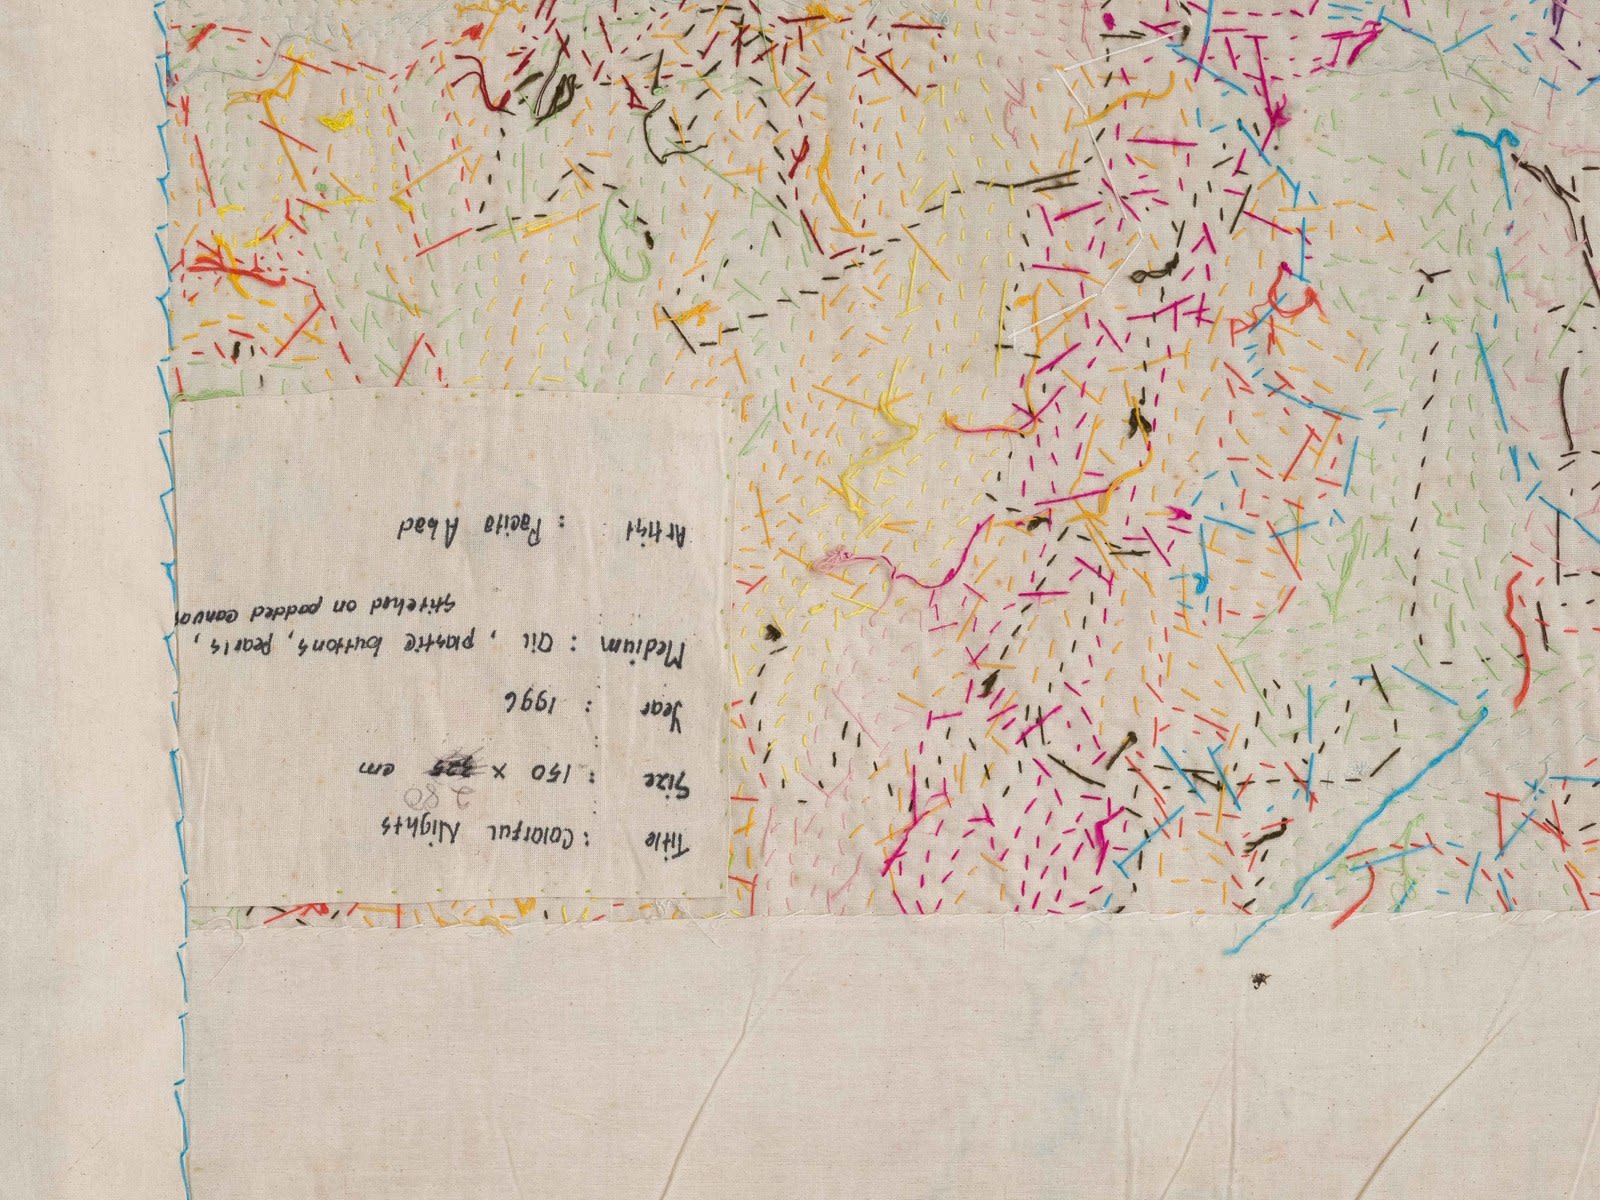 Title : Colorful Nights
280
Size : 150 x 325 cm
Year : 1996
Medium : Oil , plastic buttons, pearls,
stitched on padded canvas
Artist : Pacita Abad